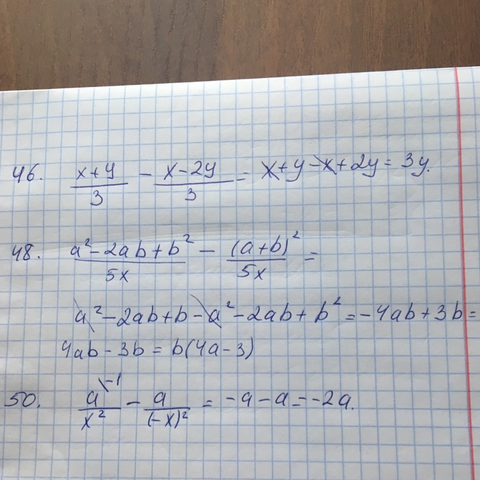 46. (x+y)/3 - (x-2y)/3 = x+y-x+2y = 3y.
48. (a²-2ab+b²)/5x - (a+b)²/5x =
a²-2ab+b-a²-2ab+b² = -4ab+3b =
4ab-3b = b(4a-3)
50. a\⁻¹/x² - a/(-x)² = -a-a=-2a.